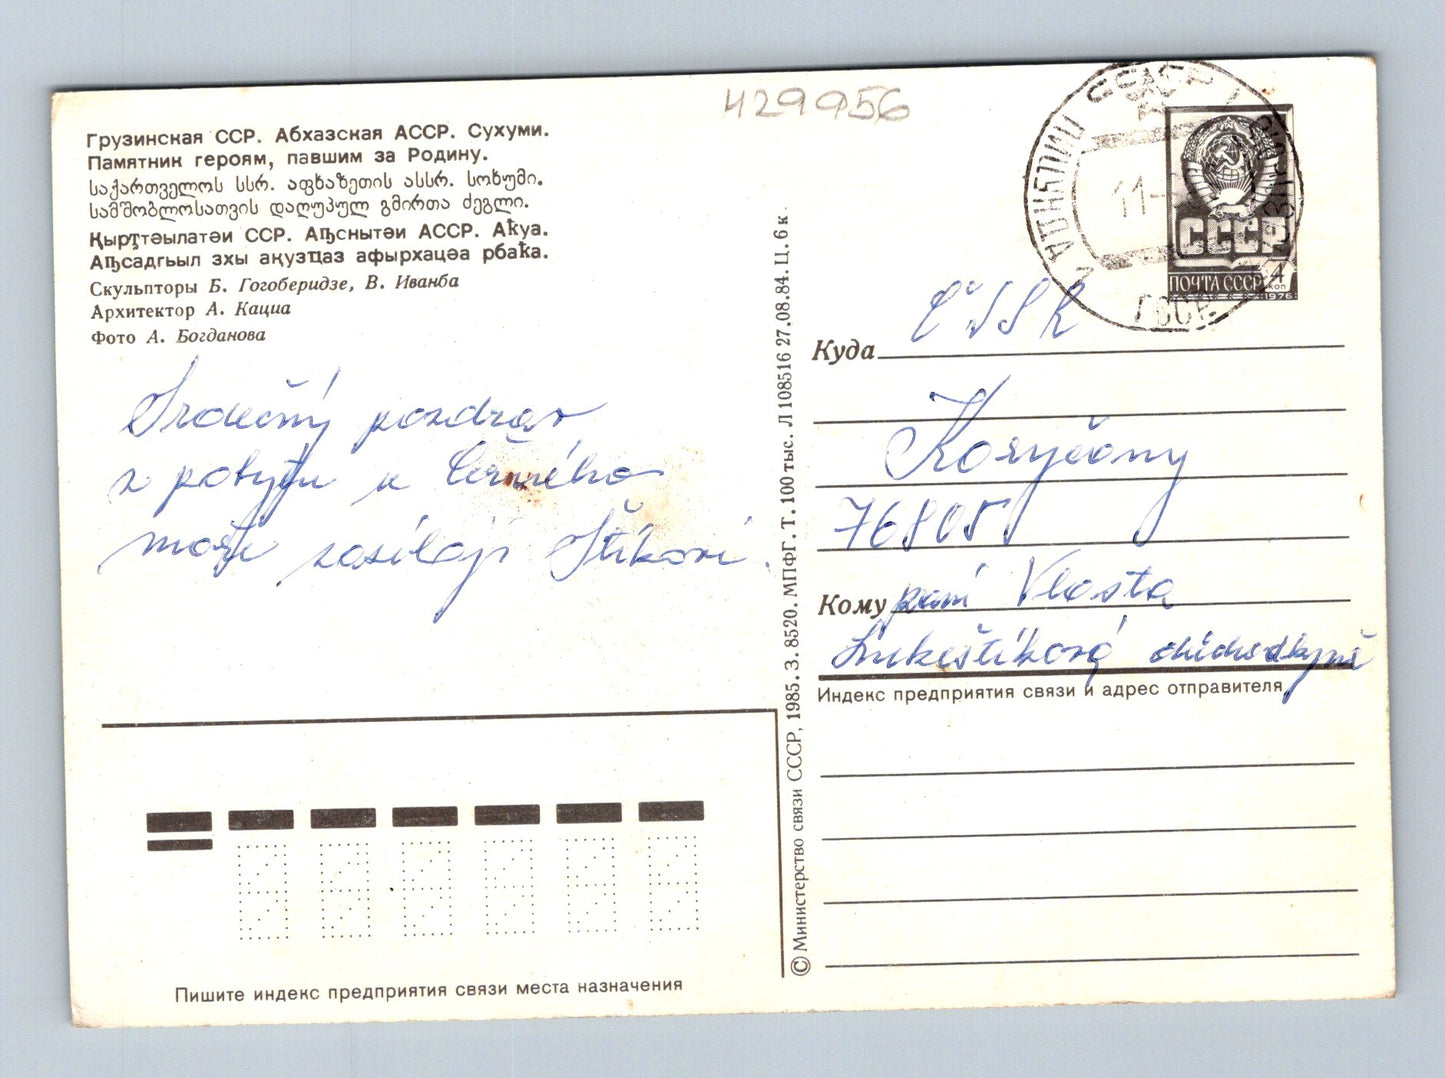 429956
Грузинская ССР. Абхазская АССР. Сухуми.
Памятник героям, павшим за Родину.
საქართველოს სსრ. აფხაზეთის ასსრ. სოხუმი.
სამშობლოსათვის დაღუპულ გმირთა ძეგლი.
Қырҭтәылатәи ССР. Аҧснытәи АССР. Аҟуа.
Аҧсадгьыл зхы ақузҵаз афырхацәа рбаҟа.
Скульпторы Б. Гогоберидзе, В. Иванба
Архитектор А. Кациа
Фото А. Богданова
Srdečný pozdrav
z pobytu u Černého
moře zasílají Štíkovi.
Пишите индекс предприятия связи места назначения
© Министерство связи СССР, 1985. З. 8520. МПФГ. Т. 100 тыс. Л 108516 27.08.84. Ц. 6 к
СССР
ПОЧТА СССР 4 коп
1976
СССР
11-
ГССР
ČSSR
Куда
Koryčany
76805
Кому paní Vlasta
důchodkyně
Индекс предприятия связи и адрес отправителя